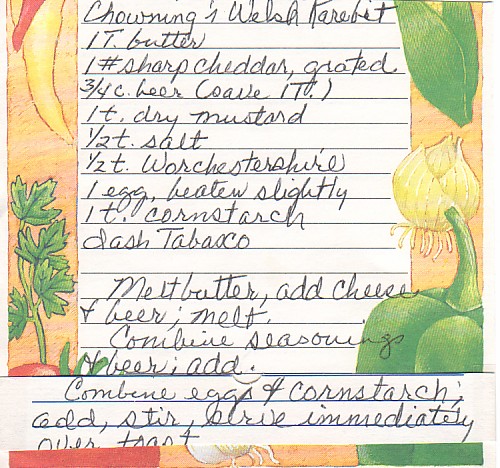 Chowning's Welsh Rarebit
1 T. butter
1# sharp cheddar, grated
3/4 c. beer (save 1T.)
1 t. dry mustard
1/2 t. salt
1/2 t. Worchestershire
1 egg, beaten slightly
1 t. cornstarch
dash Tabasco
Melt butter, add cheese
& beer; melt.
Combine seasonings
& beer; add.
Combine eggs & cornstarch;
add, stir, serve immediately
over toast